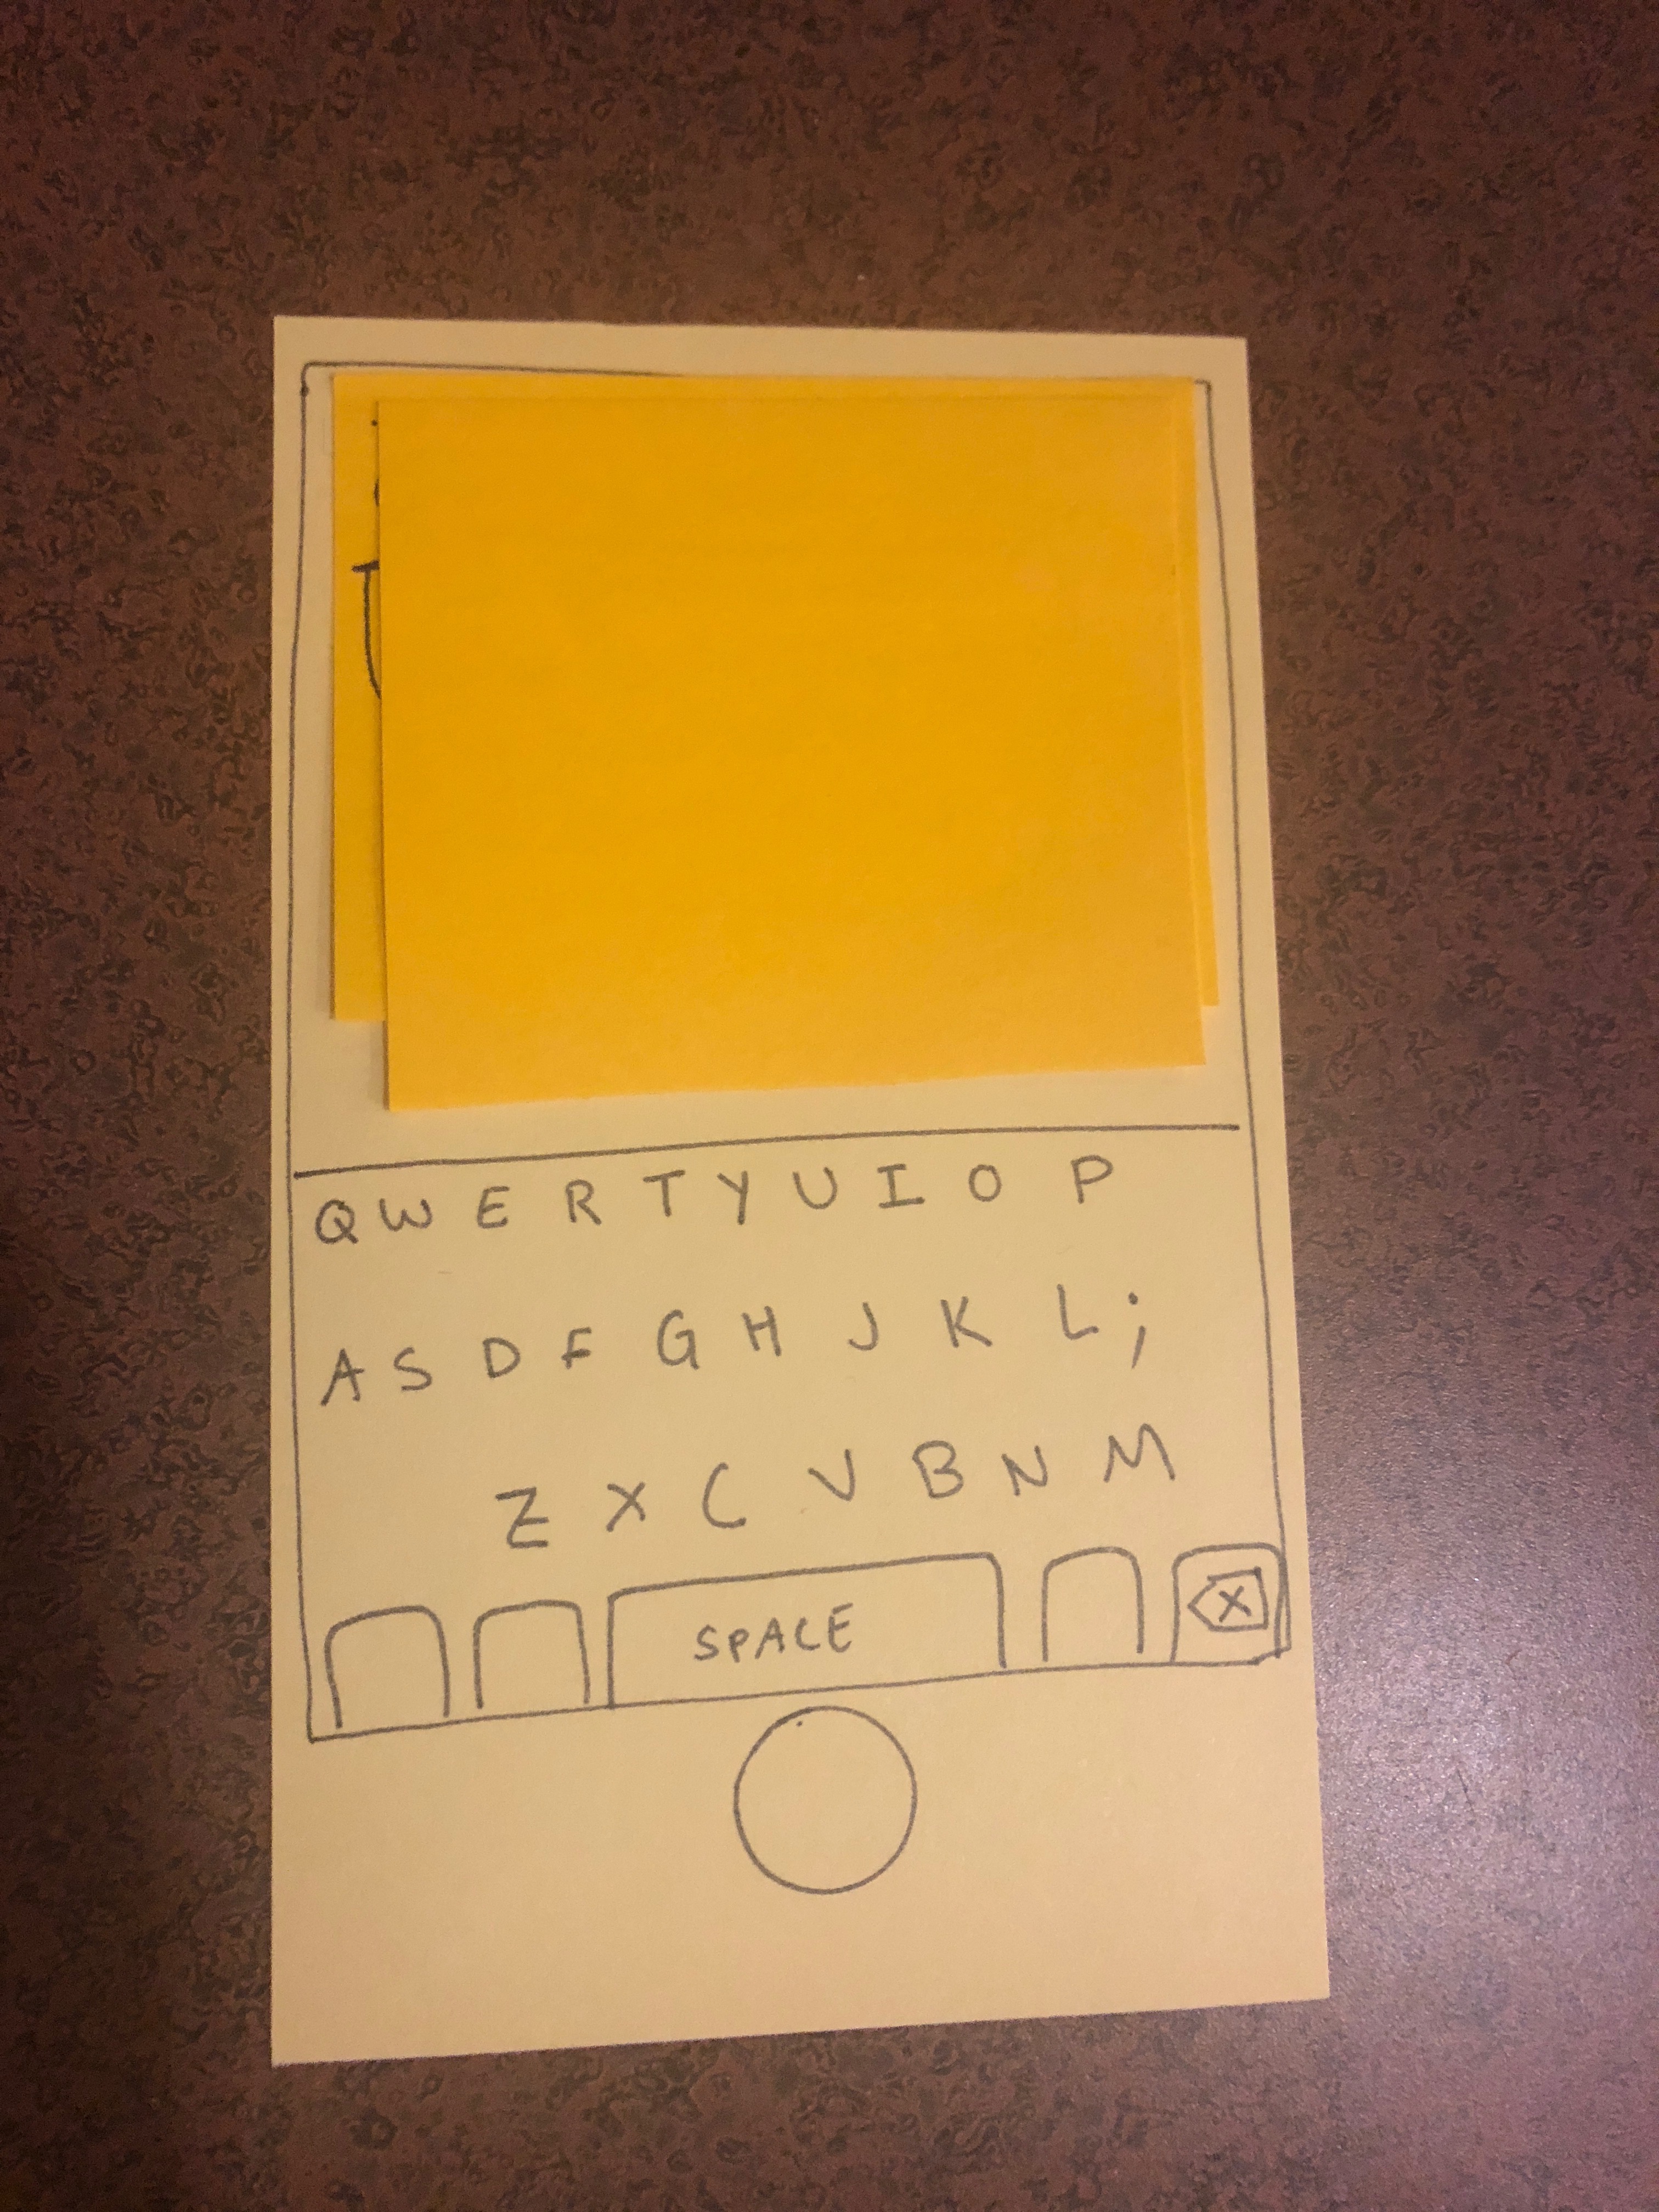 Q W E R T Y U I O P
A S D F G H J K L ;
Z X C V B N M
SPACE X